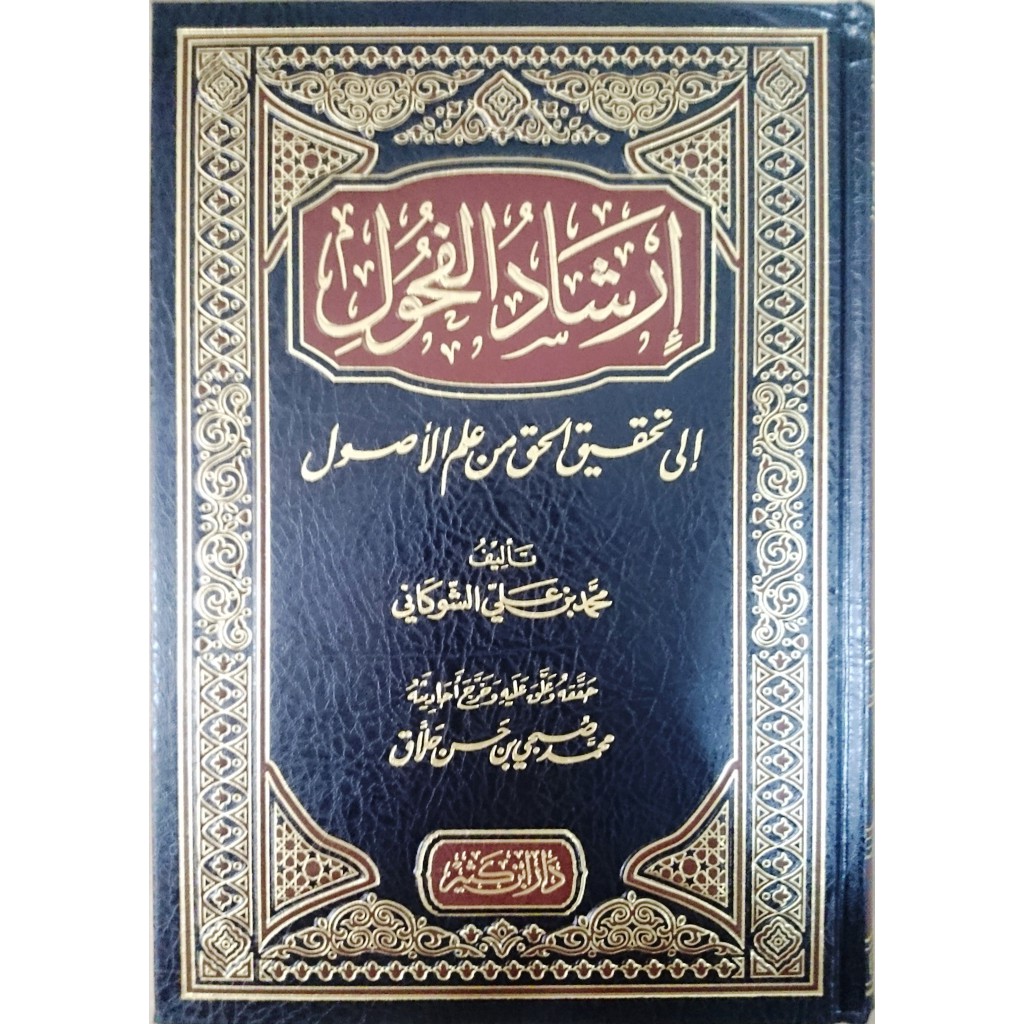 إِرْشَادُ الفُحُولِ
إلى تحقيق الحق من علم الأصول
تَأليفُ
محمّد بن عَليّ الشّوكَاني
حَقَّقَهُ وَعَلَّقَ عَلَيهِ وَخَرَّجَ أَحَادِيثَهُ
محمّد صُبحي بن حَسن حَلّاق
دَار ابْن كَثير